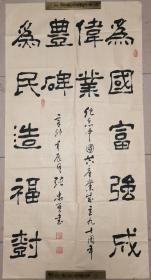 為國富強成
偉業
為民造福樹
豐碑
紀念中國共產黨成立九十周年
辛卯年夏月
書